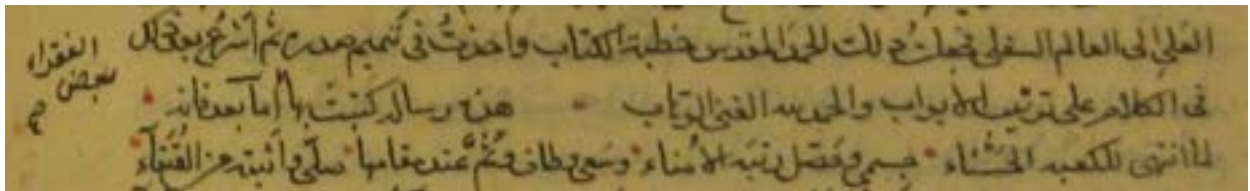 العلي الى العالم السفلي فجعلت ذلك الحمد المقدس خطبة الكتاب واخذت في تتميم صدره ثم اشرع بعد ذلك
في الكلام على ترتيب الابواب والحمد لله الغني الوهاب هذه رسالة كتبت بها اما بعد فانه
لما انتهى للكعبة الحسناء جسمي وحصل رتبة الامناء وسعى وطاف وثم عند مقامها صلى واثبته من العتقاء
الفقراء
لبعض